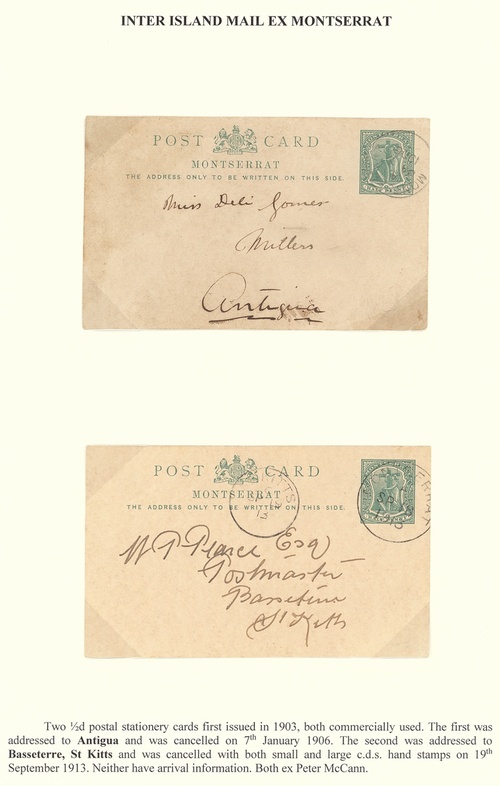 INTER ISLAND MAIL EX MONTSERRAT
POST CARD
MONTSERRAT
THE ADDRESS ONLY TO BE WRITTEN ON THIS SIDE.
Miss Deli Gomer
Millers
Antigua
POST CARD
MONTSERRAT
THE ADDRESS ONLY TO BE WRITTEN ON THIS SIDE.
W P Pearce Esq
Postmaster
Basseterre
St Kitts
Two ½d postal stationery cards first issued in 1903, both commercially used. The first was
addressed to Antigua and was cancelled on 7th January 1906. The second was addressed to
Basseterre, St Kitts and was cancelled with both small and large c.d.s. hand stamps on 19th
September 1913. Neither have arrival information. Both ex Peter McCann.